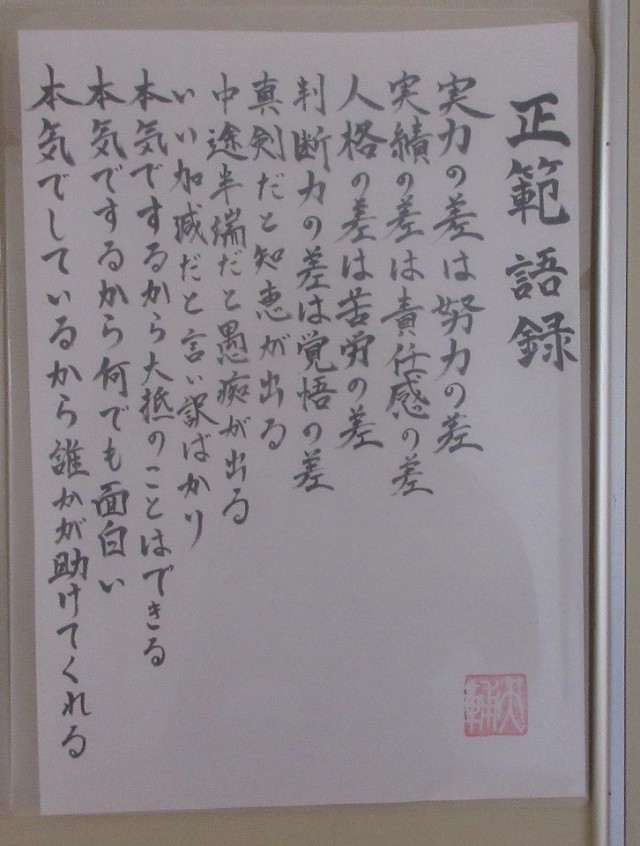 正範語録
実力の差は努力の差
実績の差は責任感の差
人格の差は苦労の差
判断力の差は覚悟の差
真剣だと知恵が出る
中途半端だと愚痴が出る
いい加減だと言い訳ばかり
本気でするから大抵のことはできる
本気でするから何でも面白い
本気でしているから誰かが助けてくれる